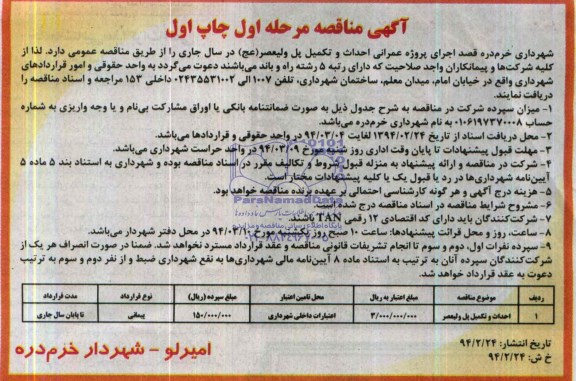 آگهی مناقصه مرحله اول چاپ اول
شهرداری خرم‌دره قصد اجرای پروژه عمرانی احداث و تکمیل پل ولیعصر(عج) در سال جاری را از طریق مناقصه عمومی دارد. لذا از
کلیه شرکت‌ها و پیمانکاران واجد صلاحیت که دارای رتبه ۵ رشته راه و باند می‌باشند دعوت می‌گردد به واحد حقوقی و امور قراردادهای
شهرداری واقع در خیابان امام، میدان معلم، ساختمان شهرداری، تلفن ۷-۰۲۴۳۵۵۳۱۰۰۲ الی داخلی ۱۵۳ مراجعه و اسناد مناقصه را
دریافت نمایند.
۱- میزان سپرده شرکت در مناقصه به شرح جدول ذیل به صورت ضمانتنامه بانکی یا اوراق مشارکت بی‌نام و یا وجه واریزی به شماره
حساب ۰۱۰۶۱۹۷۳۷۰۰۰۸ به نام شهرداری خرم‌دره می‌باشد.
۲- محل دریافت اسناد از تاریخ ۱۳۹۴/۰۲/۲۴ لغایت ۹۴/۰۳/۰۴ در واحد حقوقی و قراردادها می‌باشد.
۳- مهلت قبول پیشنهادات تا پایان وقت اداری روز شنبه مورخ ۹۴/۰۳/۰۹ در واحد حراست شهرداری می‌باشد.
۴- شرکت در مناقصه و ارائه پیشنهاد به منزله قبول شروط و تکالیف مقرر در اسناد مناقصه بوده و شهرداری به استناد بند ۵ ماده ۵
آیین‌نامه شهرداری‌ها در رد یا قبول یک یا کلیه پیشنهادات مختار است.
۵- هزینه درج آگهی و هر گونه کارشناسی احتمالی بر عهده برنده مناقصه خواهد بود.
۶- مشروح شرایط مناقصه در اسناد مناقصه درج شده است.
۷- شرکت‌کنندگان باید دارای کد اقتصادی ۱۲ رقمی TAN باشند.
۸- ساعت، روز و محل قرائت پیشنهادها: ساعت ۱۰ صبح روز یکشنبه مورخ ۹۴/۰۳/۱۰ در محل دفتر شهردار می‌باشد.
۹- سپرده نفرات اول، دوم و سوم تا انجام تشریفات قانونی مناقصه و عقد قرارداد مسترد نخواهد شد. ضمنا در صورت انصراف هر یک از
شرکت‌کنندگان سپرده آنان به ترتیب به استناد ماده ۸ آیین‌نامه مالی شهرداری‌ها به نفع شهرداری ضبط و از نفر دوم و سوم به ترتیب
دعوت به عقد قرارداد خواهد شد.
ردیف موضوع مناقصه مبلغ اعتبار به ریال محل تامین اعتبار مبلغ سپرده (ریال) نوع قرارداد مدت قرارداد
۱ احداث و تکمیل پل ولیعصر ۳/۰۰۰/۰۰۰/۰۰۰ اعتبارات داخلی شهرداری ۱۵۰/۰۰۰/۰۰۰ پیمانی تا پایان سال جاری
تاریخ انتشار: ۹۴/۲/۲۴
خ ش: ۹۴/۲/۲۴
امیرلو - شهردار خرم‌دره
ParsNamadData